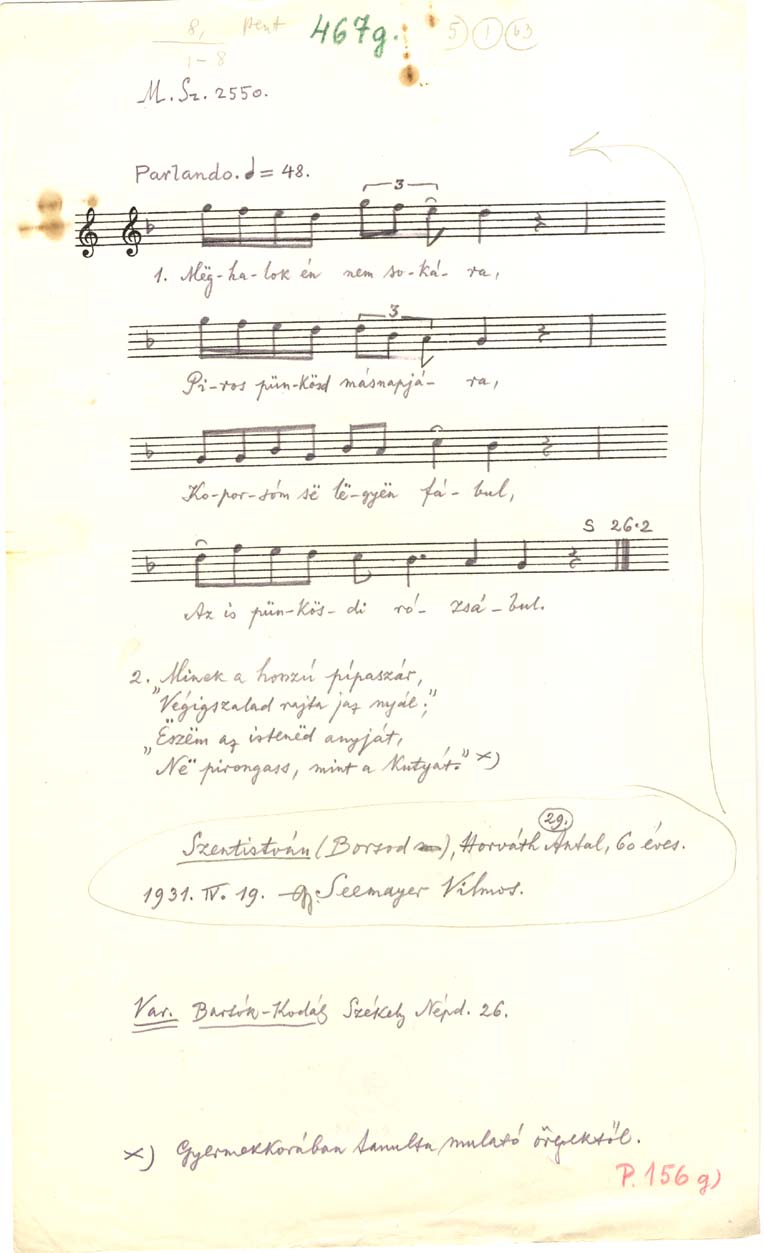 8, pent 467g. 5 1 63
1-8
M. Sz. 2550.
Parlando. = 48.
3
1. Mëg-ha-lok én nem so-ká-ra,
3
Pi-ros pün-kösd másnapjá-ra,
Ko-por-sóm së lë-gyën fá-bul,
S 26·2
Az is pün-kös-di ró-zsá-bul.
2. Minek a hosszú pípaszár,
"Végigszalad rajta jaz nyál;"
"Ëszëm az istenëd anyját,
"Në" pirongass, mint a kutyát." x)
29.
Szentistván (Borsod), Horváth Antal, 60 éves.
1931. IV. 19. Gy. Seemayer Vilmos.
Var. Bartók-Kodály Székely Népd. 26.
x) Gyermekkorában tanulta mulató örgektől.
P. 156 g)